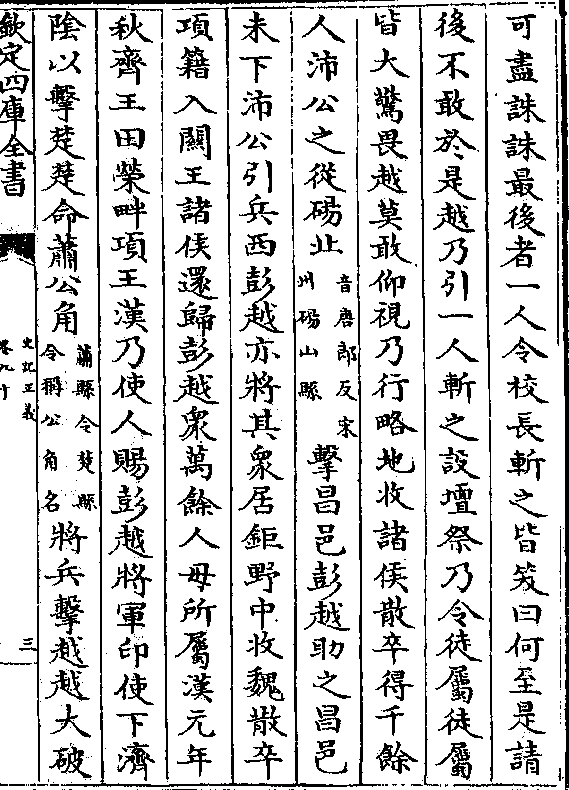 可盡誅誅最後者一人令校長斬之皆笑曰何至是請
後不敢於是越乃引一人斬之設壇祭乃令徒屬徒屬
皆大驚畏越莫敢仰視乃行略地收諸侯散卒得千餘
人沛公之從碭北音唐郎反宋州碭山縣擊昌邑彭越助之昌邑
未下沛公引兵西彭越亦將其衆居鉅野中收魏散卒
項籍入關王諸侯還歸彭越衆萬餘人毋所屬漢元年
秋齊王田榮畔項王漢乃使人賜彭越將軍印使下濟
陰以擊楚楚命蕭公角蕭縣令楚縣令稱公角名將兵擊越越大破
欽定四庫全書
史記正義
卷九十
三